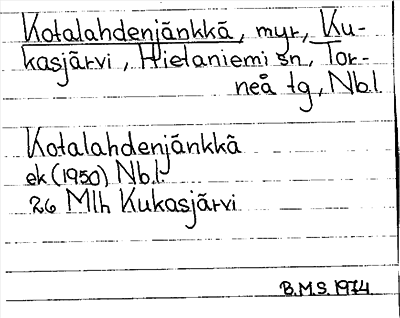 Kotalahdenjänkkä, myr, Ku-
kasjärvi, Hietaniemi sn, Tor-
neå tg, Nbl.
Kotalahdenjänkkä
ek (1950) Nb.l.
26 Mlh Kukasjärvi
B.M.S. 1974